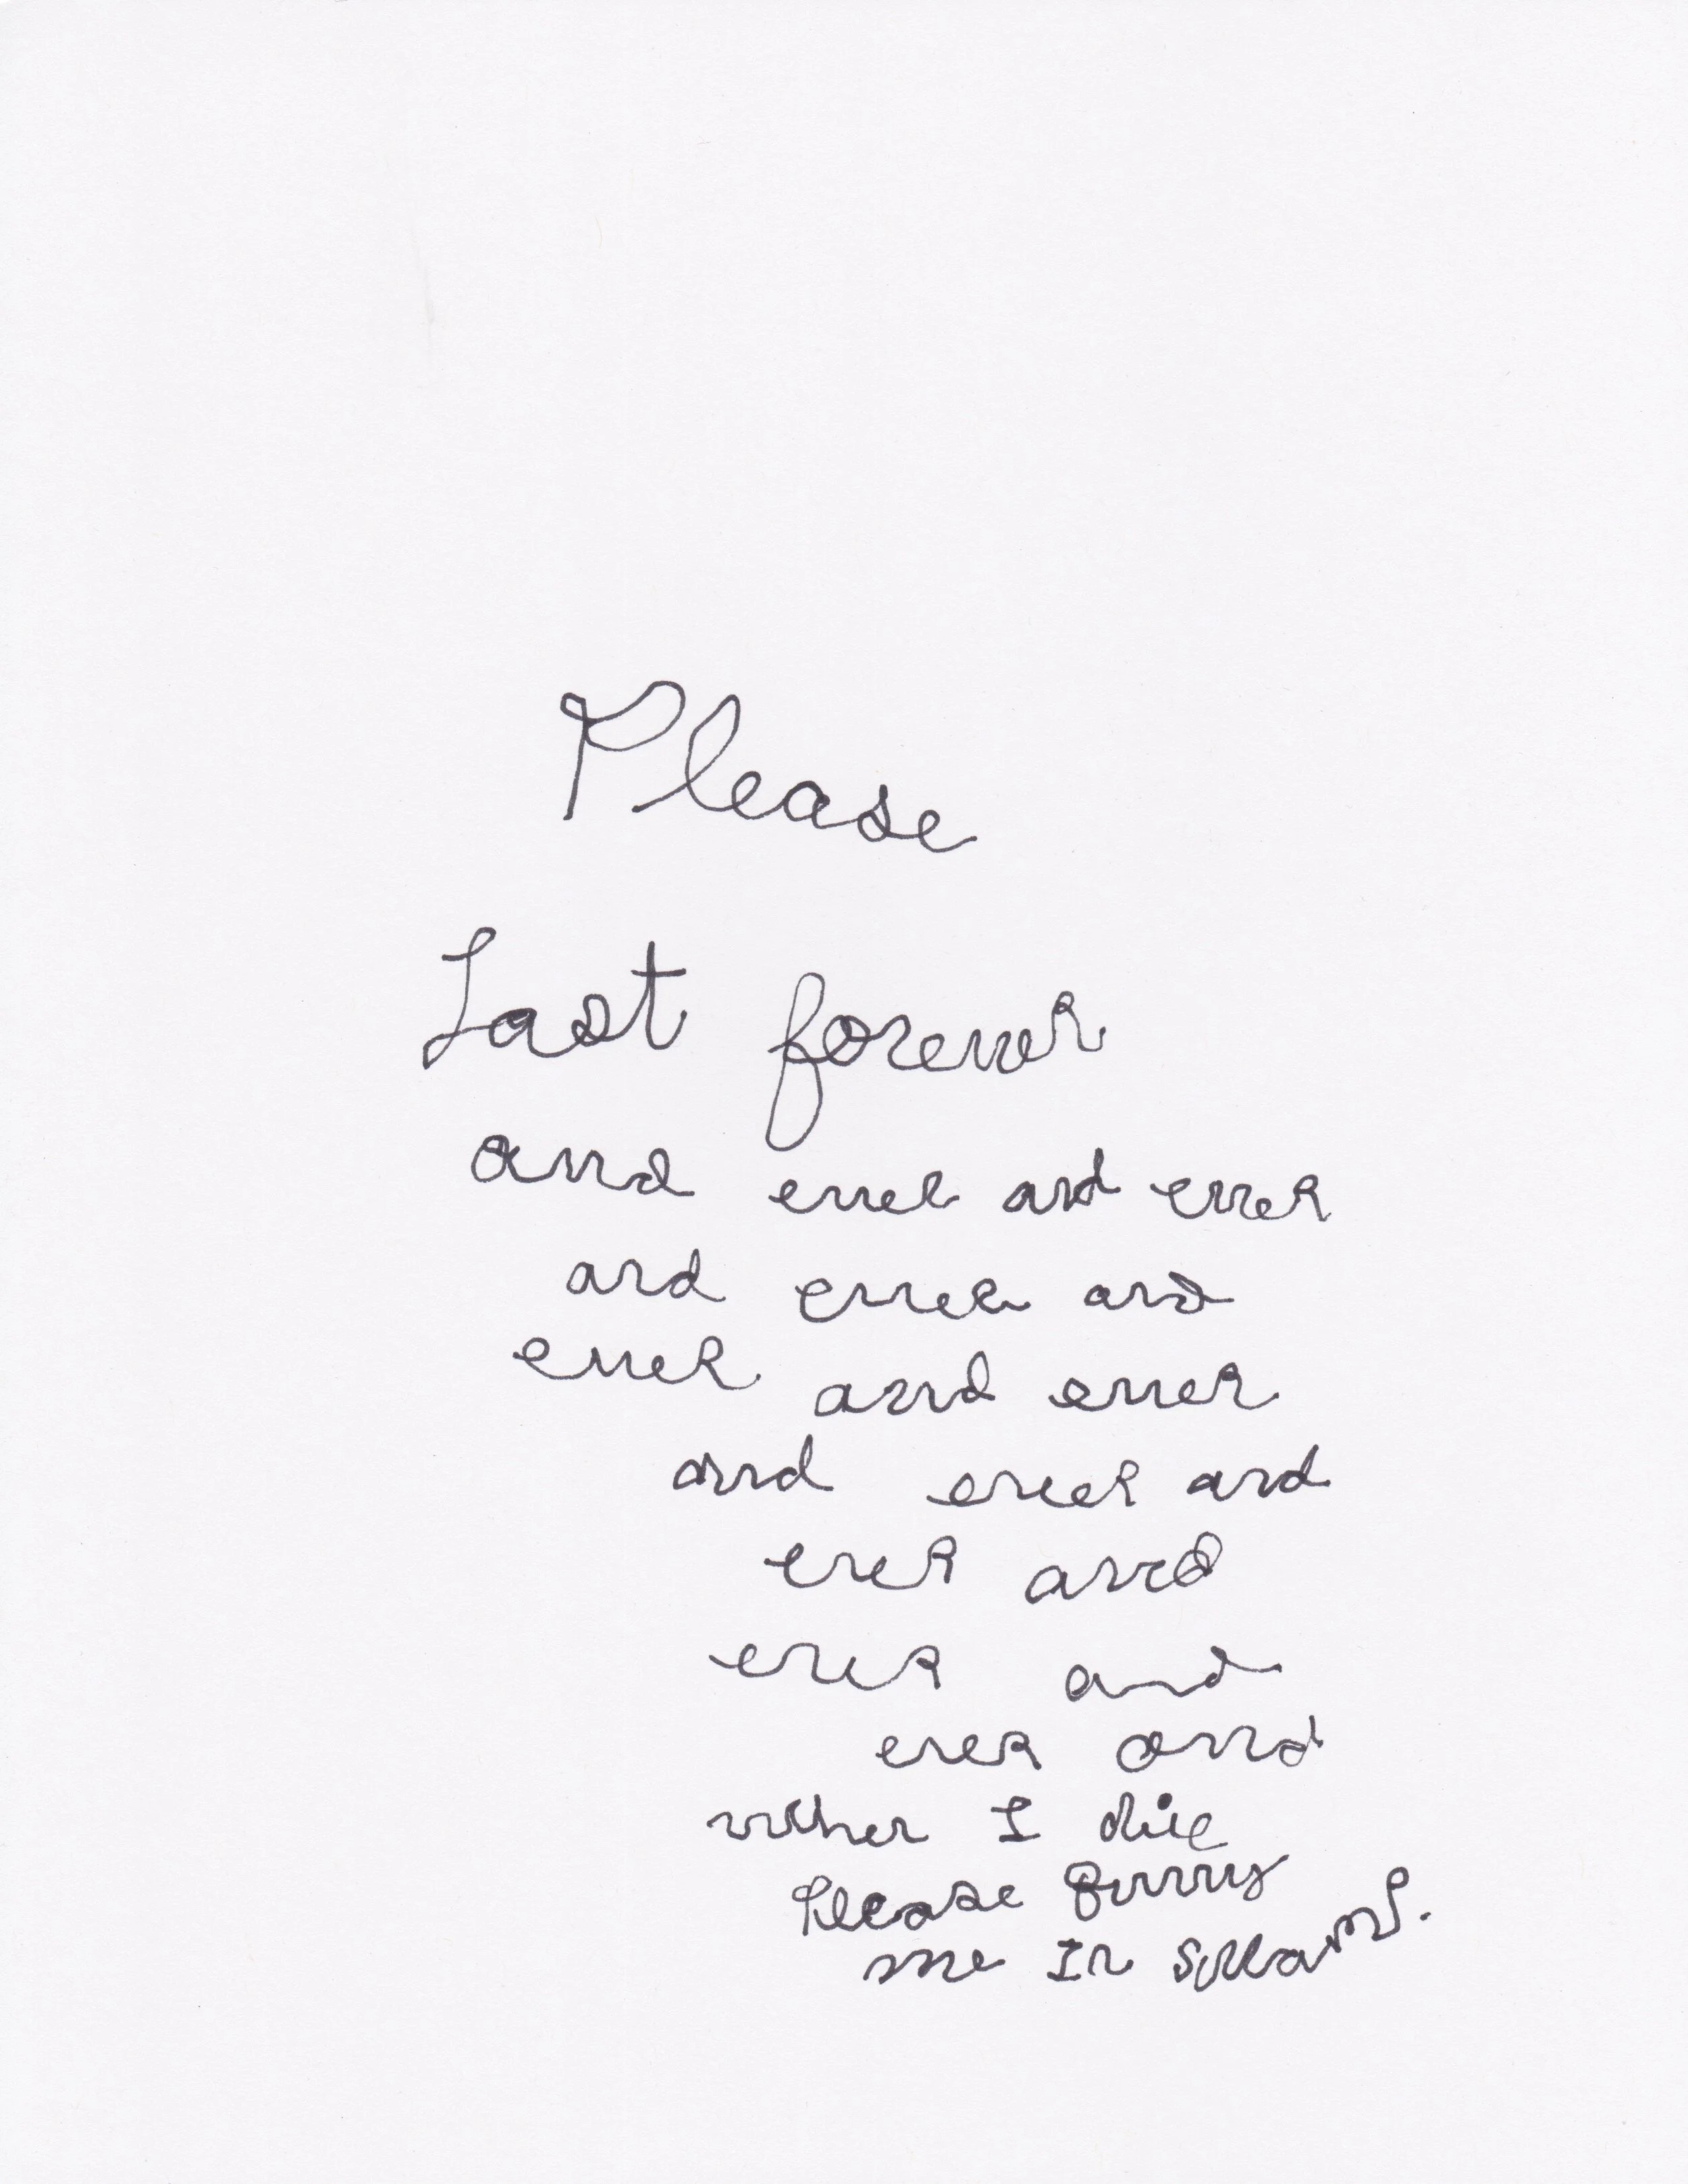 Please
Last forever
and ever and ever
and ever and
ever and ever
and ever and
ever and
ever and
ever and
when I die
Please burry
me In